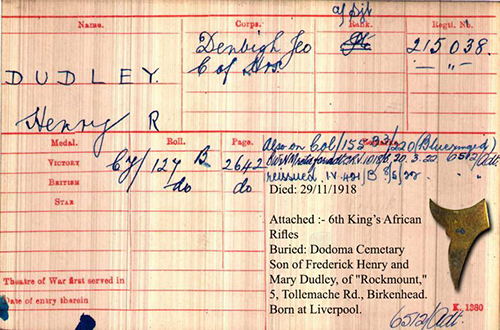 Name. Corps. Rank. Regtl. No.
a/Sjt
Denbigh Yeo 215038.
DUDLEY. C of Hrs. — " —
Henry R
Medal. Roll. Page.
Also on Col/155 B3/220 (Bluejingo)
VICTORY Cy/127 B 2642
20.3.22 6512/Adt.
BRITISH do do reissued IV. 421/B
STAR
Died: 29/11/1918
Attached :- 6th King's African
Rifles
Buried: Dodoma Cemetary
Son of Frederick Henry and
Mary Dudley, of "Rockmount,"
5, Tollemache Rd., Birkenhead.
Born at Liverpool.
Theatre of War first served in
Date of entry therein
K. 1380
6512/Adt.